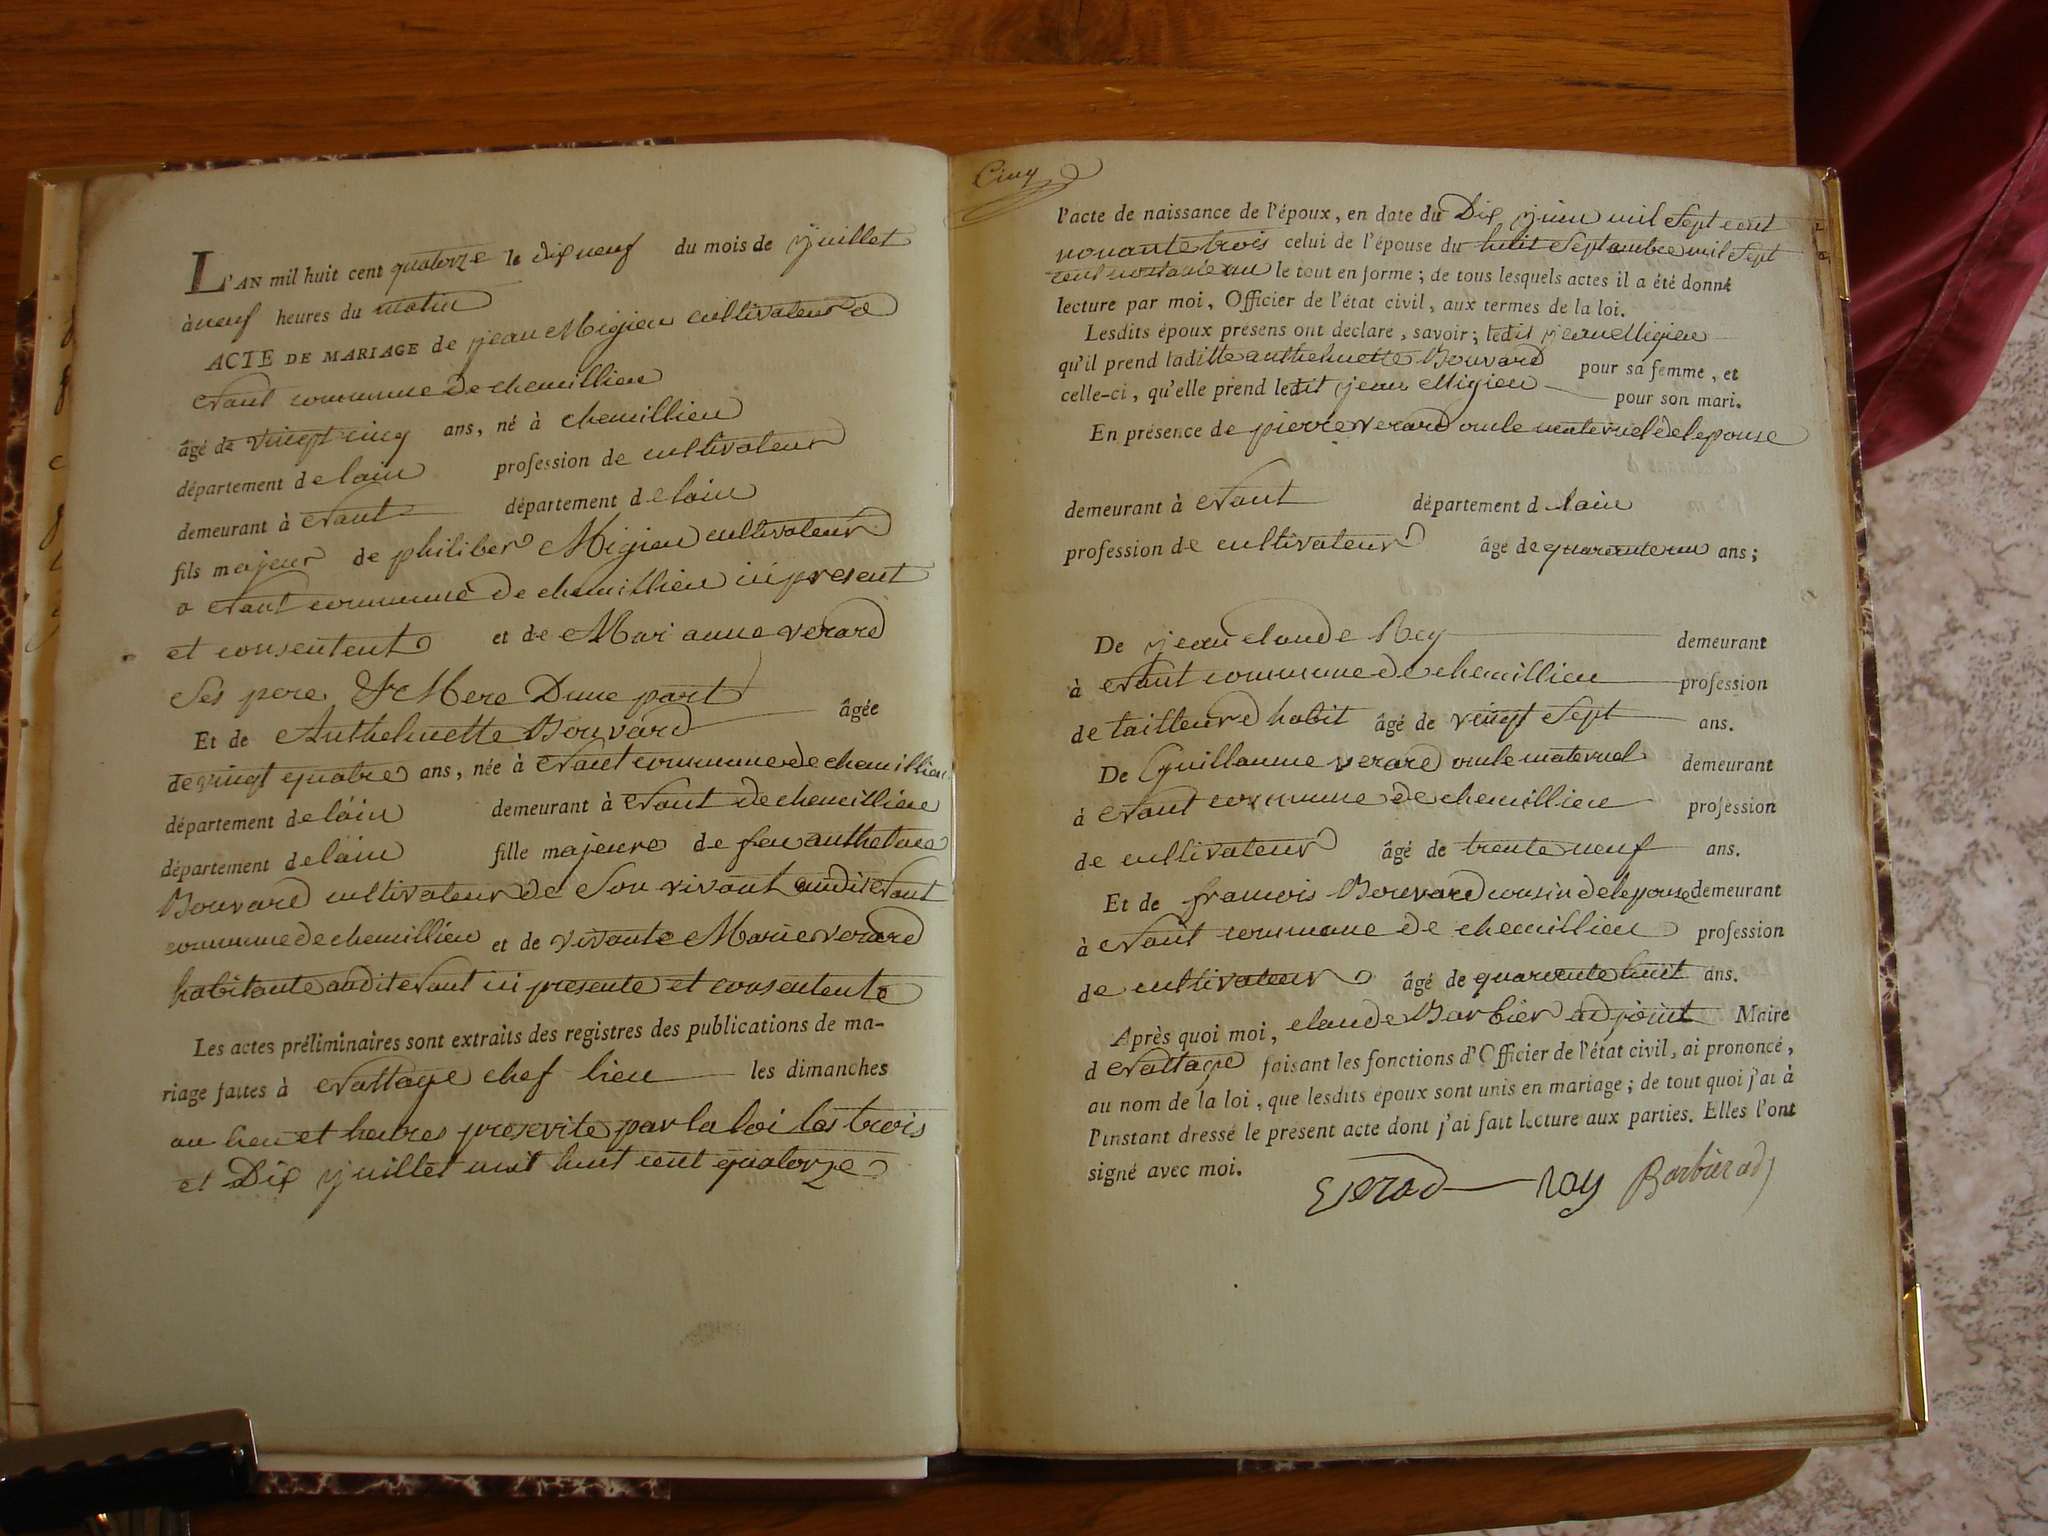 L'AN mil huit cent quatorze le dix neuf du mois de juillet
à neuf heures du matin
ACTE DE MARIAGE de jean Migieu cultivateur a
commune de chemillieu
âgé de vingt cinq ans, né à chemillieu
département de lain profession de cultivateur
demeurant à département de lain
fils majeur de philiber Migieu cultivateur
a commune de chemillieu ici present
et consentent et de Mari anne verard
Ses pere & Mere Dune part
Et de Anthelmette Bouvard âgée
de vingt quatre ans, née à commune de chemillieu
département de lain demeurant à de chemillieu
département de lain fille majeure de feu anthelme
Bouvard cultivateur de Son vivant audit
commune de chemillieu et de vivante Marie verard
habitante audit ici presente et consentente
Les actes préliminaires sont extraits des registres des publications de ma-
riage faites à chef lieu les dimanches
au lieu et heures prescrite par la loi les trois
et Dix juillet mil huit cent quatorze
Cinq
l'acte de naissance de l'époux, en date du Dix juin mil Sept cent
celui de l'épouse du huit Septembre mil Sept
cent le tout en forme; de tous lesquels actes il a été donné
lecture par moi, Officier de l'état civil, aux termes de la loi.
Lesdits époux présens ont déclaré, savoir; ledit jean Migieu
qu'il prend laditte anthelmette Bouvard pour sa femme, et
celle-ci, qu'elle prend ledit jean Migieu pour son mari.
En présence de pierre verard oncle maternel de lepouse
demeurant à département d lain
profession de cultivateur âgé de quarante un ans;
De jean claude Rey demeurant
à commune de chemillieu profession
de tailleur d habit âgé de vingt Sept ans.
De Guillaume verard oncle maternel demeurant
à commune de chemillieu profession
de cultivateur âgé de trente neuf ans.
Et de francois Bouvard cousin de lepouse demeurant
à commune de chemillieu profession
de cultivateur âgé de quarante huit ans.
Après quoi moi, claude Barbier adjoint Maire
d faisant les fonctions d'Officier de l'état civil, ai prononcé,
au nom de la loi, que lesdits époux sont unis en mariage; de tout quoi j'ai à
l'instant dressé le présent acte dont j'ai fait lecture aux parties. Elles l'ont
signé avec moi.
verad Roy Barbier adj